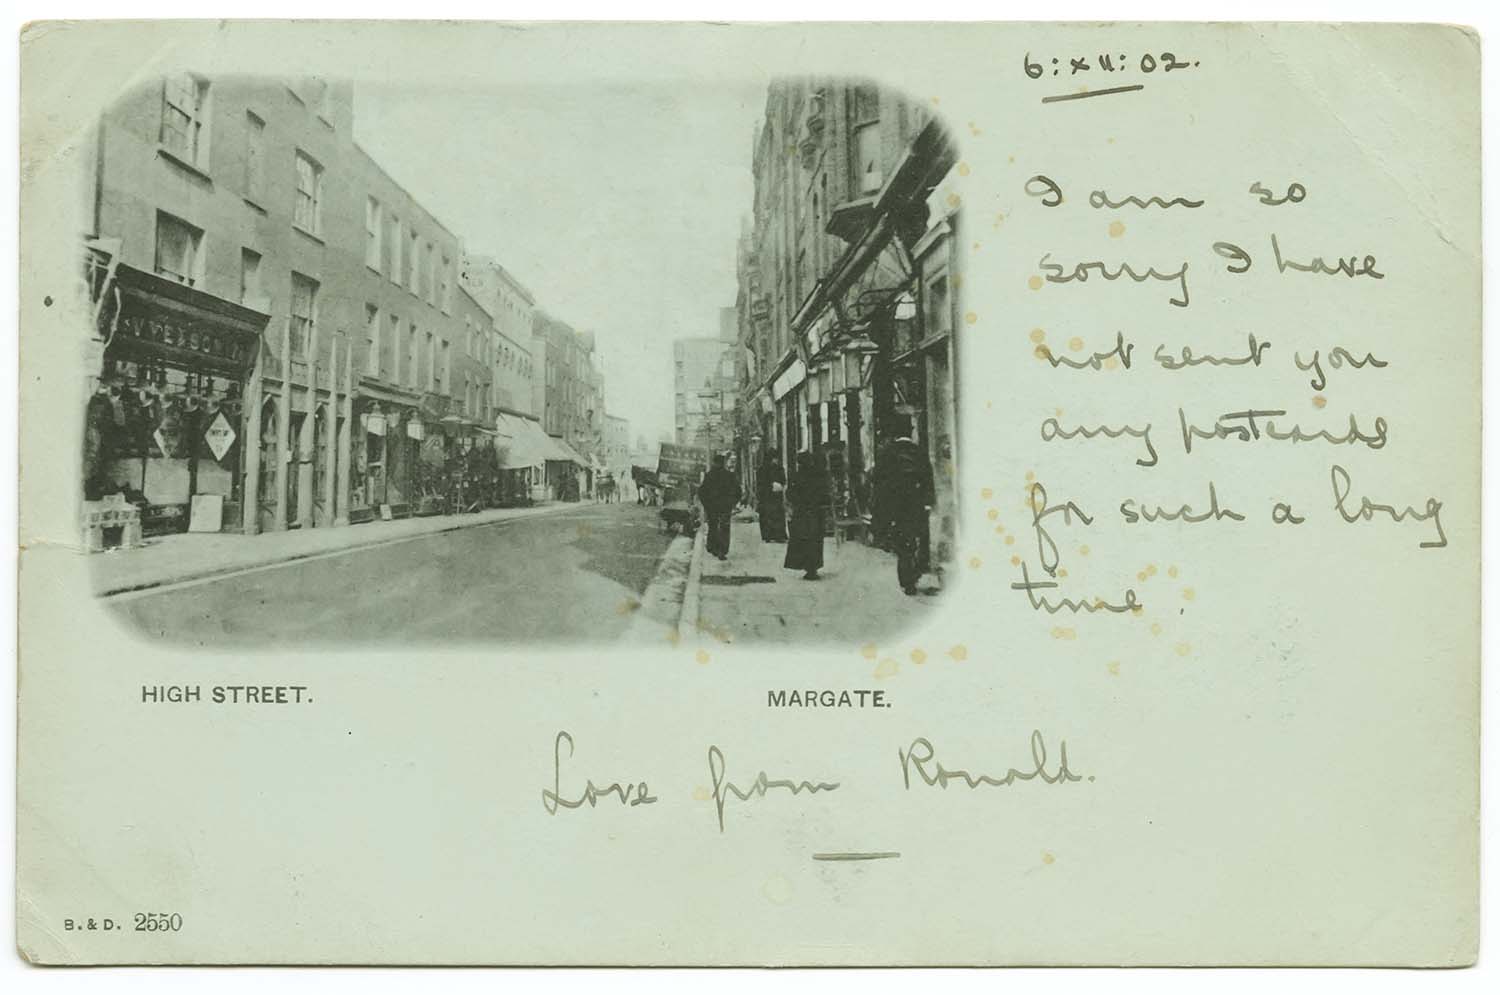 6:XII:02.
I am so
sorry I have
not sent you
any postcards
for such a long
time.
HIGH STREET.
MARGATE.
Love from Ronald.
B. & D. 2550